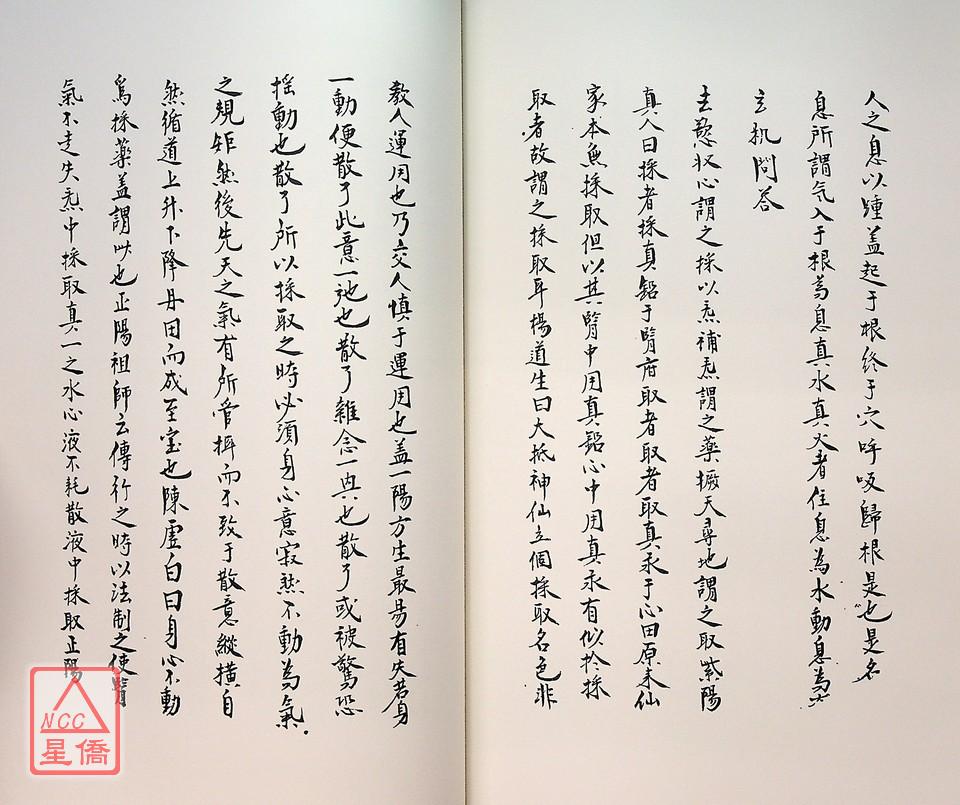 人之息以踵盖起于根终于穴呼吸歸根是也是名
息所謂气入于根為息真水真火者住息為水動息為火
玄机問答
主懲收心謂之採以炁補炁謂之藥撅天尋地謂之取紫陽
真人曰採者採真鉛于腎府取者取者取真汞于心田原来仙
家本無採取但以其腎中用真鉛心中用真汞有似扵採
取者故謂之採取耳楊道生曰大抵神仙立個採取名色非
教人運用也乃交人慎于運用也盖一陽方生最易有失若身
一動便散了此意一弛也散了雜念一與也散了或被驚恐
摇動也散了所以採取之時必須身心意寂然不動為氣
之規矩然後先天之氣有所管押而不致于散意縱横自
然循道上升下降丹田而成至宝也陳虚白曰身心不動
為採藥盖謂此也正陽祖師云傳行之時以法制之使腎
氣不走失炁中採取真一之水心液不耗散液中採取正陽
NCC
星僑